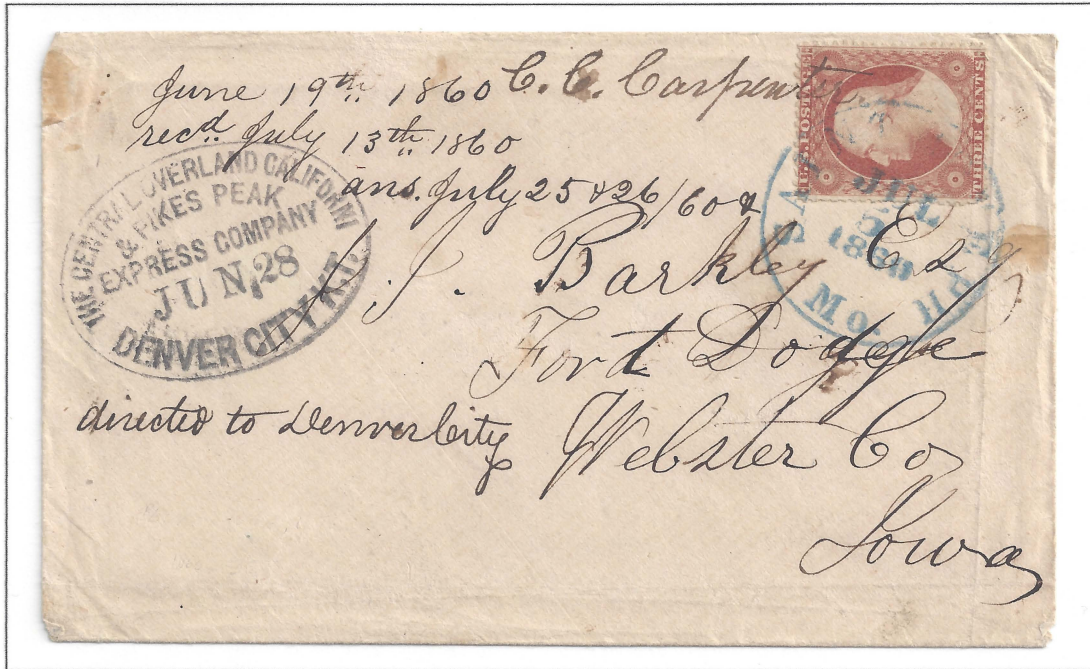 June 19th 1860 C. C. Carpenter
recd July 13th 1860
ans. July 25 & 26/60
THE CENTRAL OVERLAND CALIFORNI
& PIKES PEAK
EXPRESS COMPANY
JUN 28
DENVER CITY K.T.
U.S. POSTAGE
THREE CENTS
JUL
5
1860
Mo.
J. Barkley Esq
Fort Dodge
directed to Denver City
Webster Co
Iowa